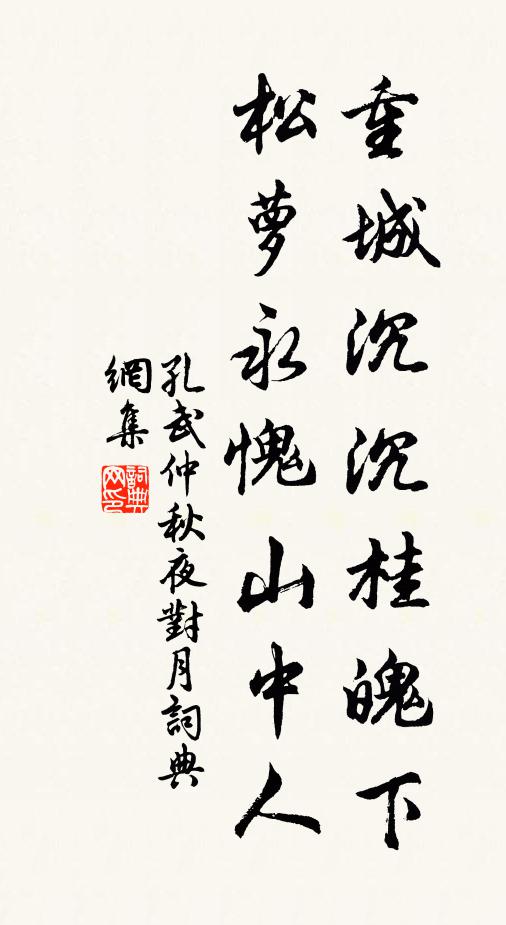 重城沉沉桂魄下
松萝永愧山中人
孔武仲秋夜對月詞典
網集
詞典網印